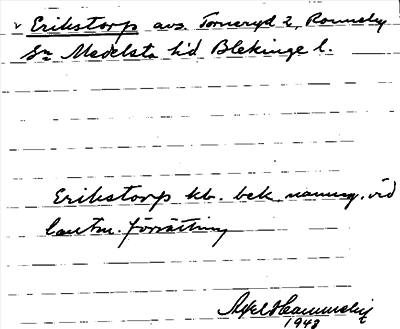 v Erikstorp avs. Torneryd 2, Ronneby
Sn Medelsta hd Blekinge l.
Erikstorp kb. bek. namng. vid
lantm. förrättning
Axel
1943